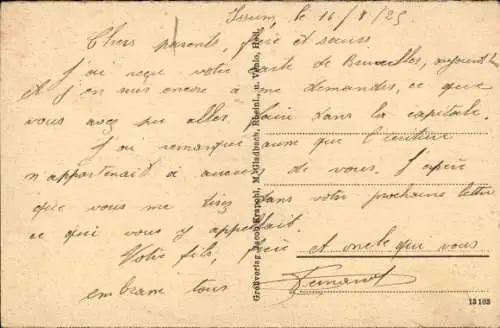 Issum, le 16/8/25
Chers parents, frère et sœurs
J'ai reçu votre carte de Bruxelles, aujourd'hui
et j'en suis encore à me demander, ce que
vous avez pu aller faire dans la capitale.
J'ai remarqué aussi que l'écriture
n'appartenait à aucun de vous. J'espère
que vous me direz dans votre prochaine lettre
ce qui vous y appelait.
Votre fils, frère et oncle qui vous
embrasse tous
Fernand
Großverlag Jacob Krapohl, M.Gladbach, Rheinl., u. Venlo, Holl.
13103